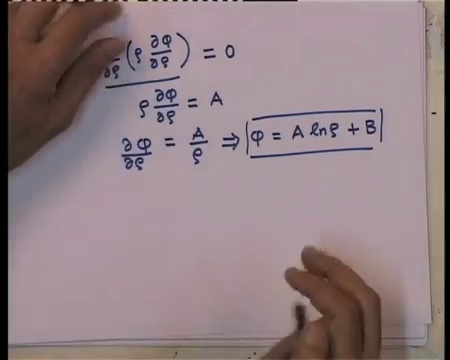 ∂/∂ρ (ρ ∂φ/∂ρ) = 0
ρ ∂φ/∂ρ = A
∂φ/∂ρ = A/ρ ⇒ φ = A ln ρ + B